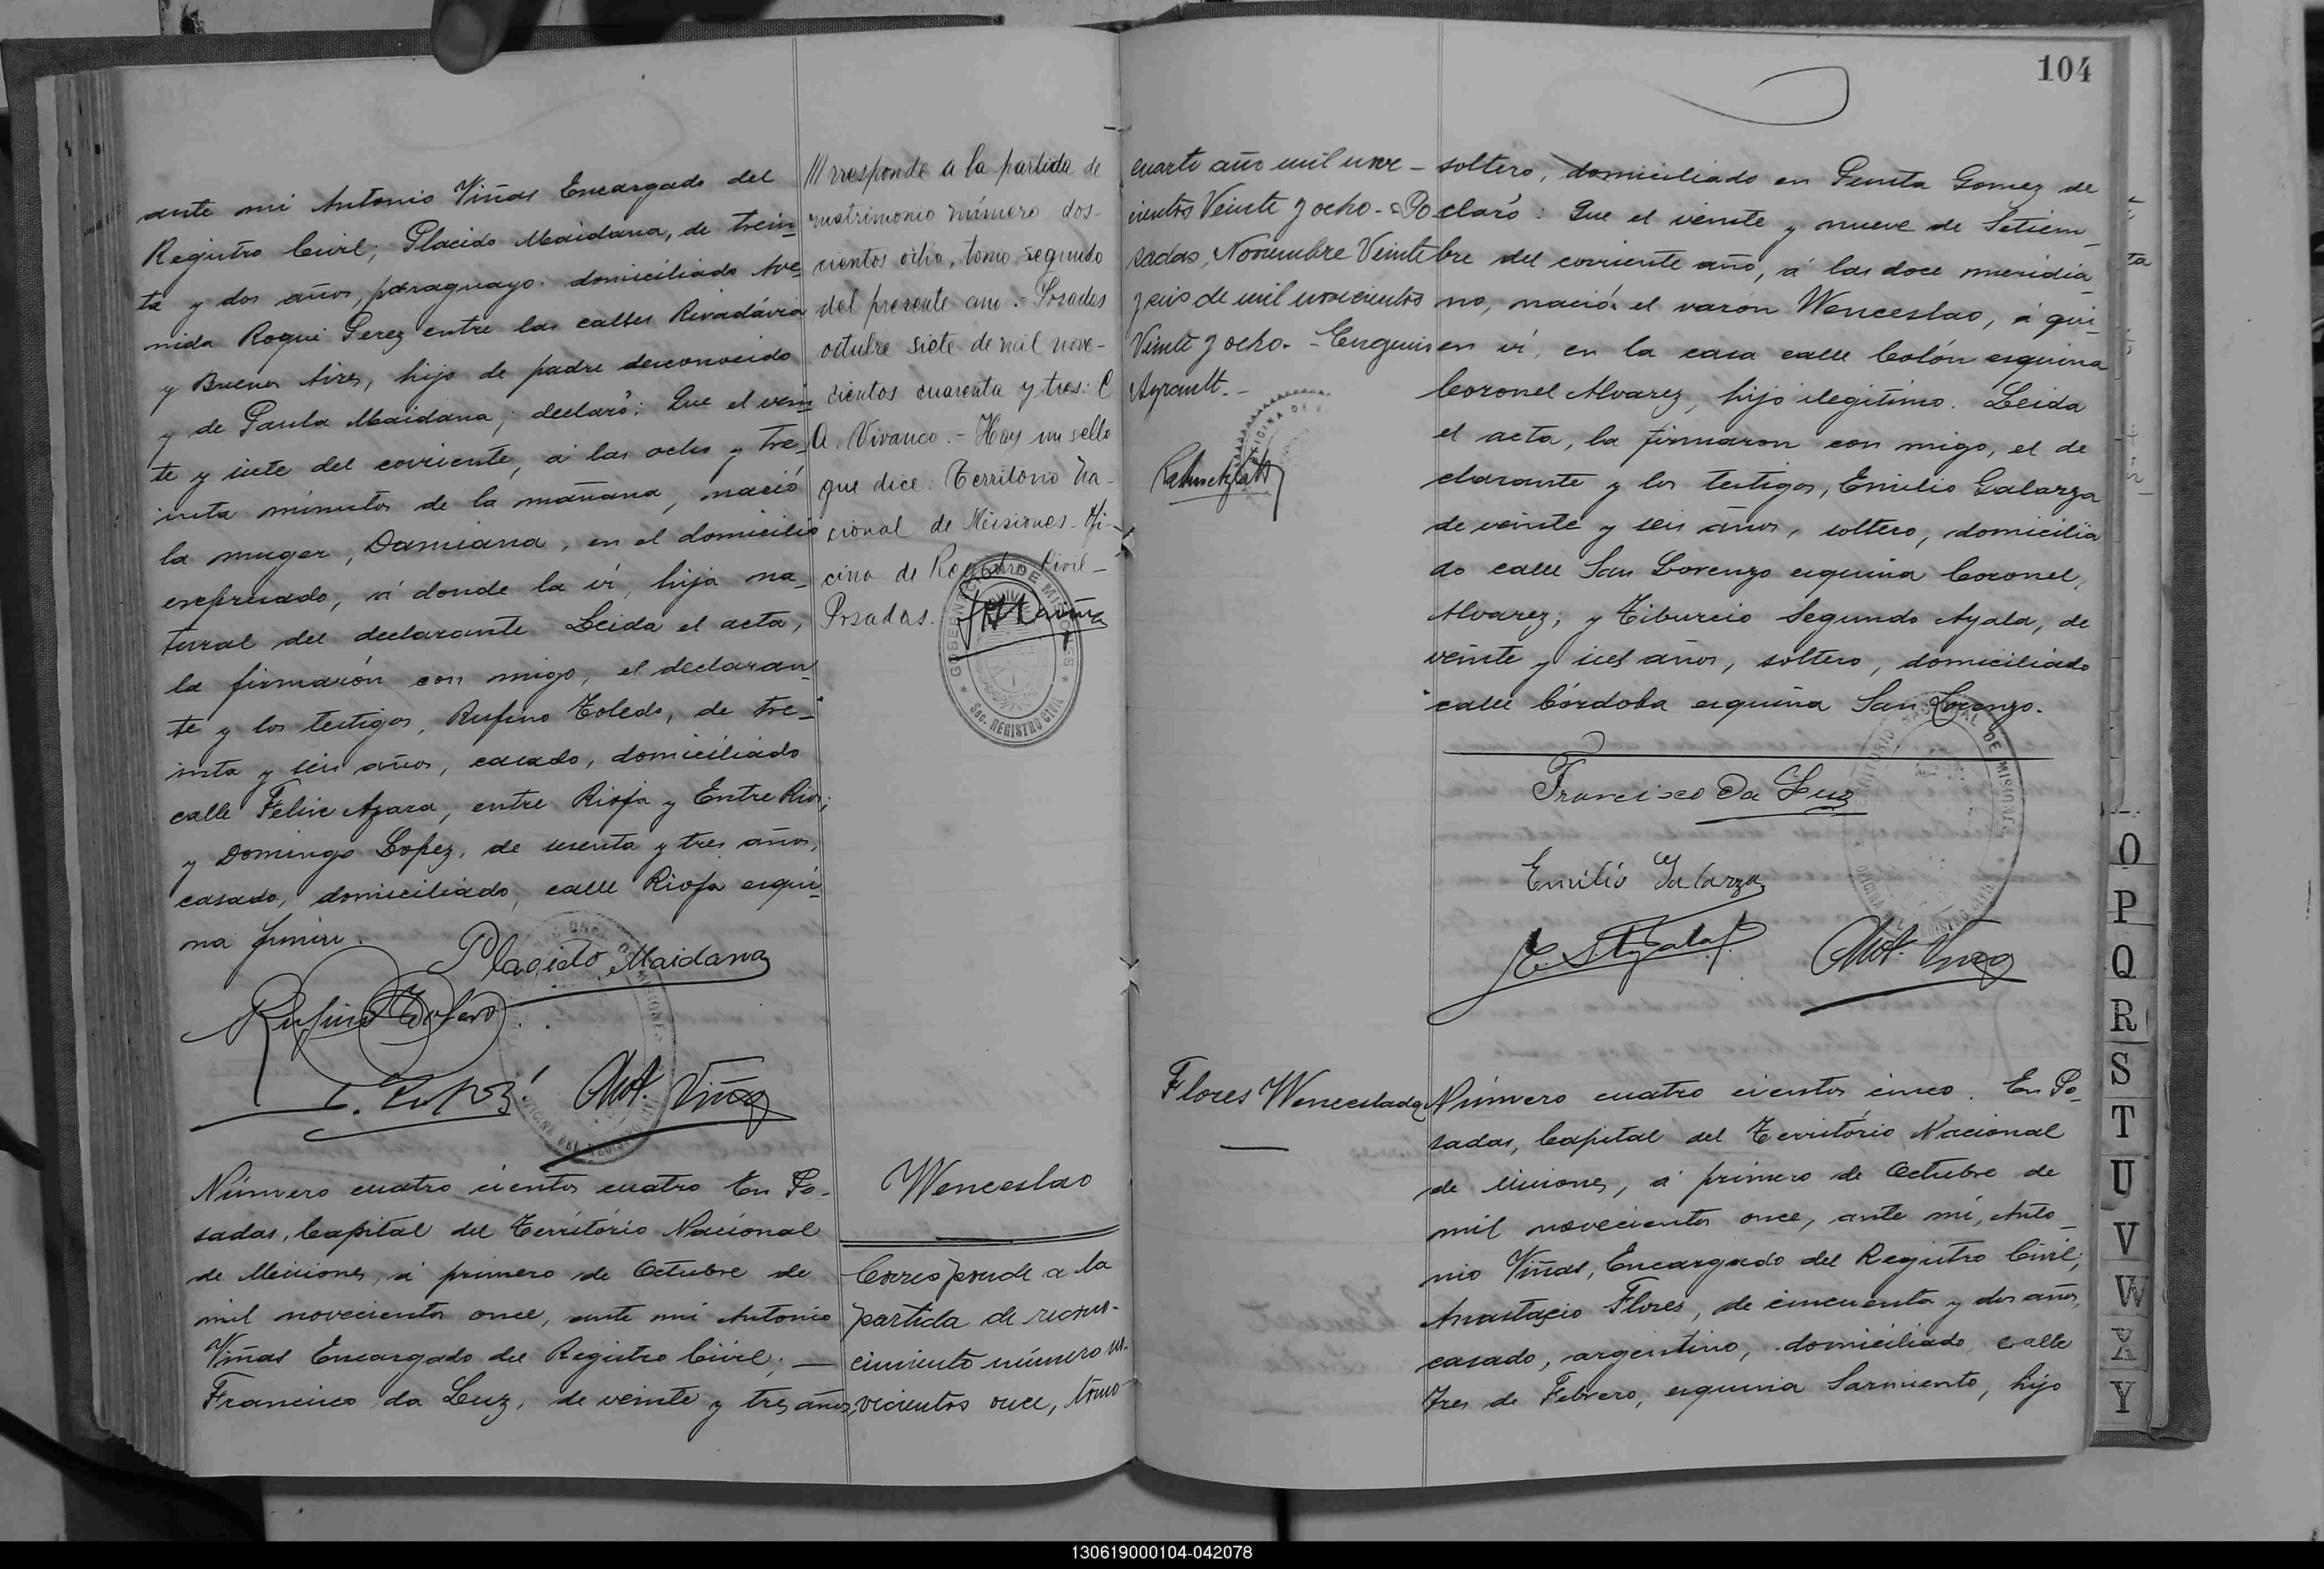 ante mi Antonio Viñas Encargado del
Registro Civil; Placido Maidana, de trein
ta y dos años, paraguayo. domiciliado Ave
nida Roque Perez entre las calles Rivadávia
y Buenos Aires, hijo de padre desconocido
y de Paula Maidana; declaró: Que el vein
te y siete del corriente, á las ocho y tre
inta minutos de la mañana, nació
la muger, Damiana, en el domicilio
expresado, á donde la ví, hija na-
tural del declarante Leida el acta,
la firmarón con migo, el declaran
te y los testigos, Rufino Toledo, de tre-
inta y seis años, casado, domiciliado
calle Felix Azara, entre Rioja y Entre Rios;
y Domingo Lopez, de sesenta y tres años,
casado, domiciliado, calle Rioja esqui
na Junin.
Placido Maidana
Rufino Toledo
Ant. Viñas
Número cuatro cientos cuatro En Po-
sadas, Capital del Território Nacional
de Misiones, á primero de Octubre de
mil novecientos once, ante mi Antonio
Viñas Encargado del Registro Civil; —
Francisco da Luz, de veinte y tres años,
///rresponde a la partida de
matrimonio número dos-
cientos ocho, tomo segundo
del presente año. Posadas
octubre siete de mil nove-
cientos cuarenta y tres: C
A. Vivanco.- Hay un sello
que dice: Territorio Na-
cional de Misiones- Ofi-
cina de Registro Civil-
Posadas.
GOBERNACION DE MISIONES
Sec. REGISTRO CIVIL
Wenceslao
Corresponde a la
partida de recono-
cimiento número no-
vecientos once, tomo
104
cuarto año mil nove-
cientos Veinte y ocho.- Po
sadas, Noviembre Veinte
y seis de mil novecientos
Veinte y ocho.-
Ayrault.-
soltero, domiciliado en Punta Gomez de
claró: Que el veinte y nueve de Setiem
bre del corriente año, á las doce meridia
no, nació el varon Wenceslao, á qui
en ví, en la casa calle Colón esquina
Coronel Alvarez, hijo ilegitimo. Leida
el acta, la firmaron con migo, el de
clarante y los testigos, Emilio Galarza
de veinte y seis años, soltero, domicilia
do calle San Lorenzo esquina Coronel,
Alvarez; y Tiburcio Segundo Ayala, de
veinte y seis años, soltero, domiciliado
calle Córdoba esquina San Lorenzo.
Francisco Da Luz
Emilio Galarza
T. S. Ayala
Ant. Viñas
Flores Wenceslada
Número cuatro cientos cinco. En Po-
sadas, Capital del Território Nacional
de Misiones, á primero de Octubre de
mil novecientos once, ante mí, Anto
nio Viñas, Encargado del Registro Civil;
Anastacio Flores, de cincuenta y dos años,
casado, argentino, domiciliado calle
Tres de Febrero, esquina Sarmiento, hijo
O
P
Q
R
S
T
U
V
W
X
Y
130619000104-042078